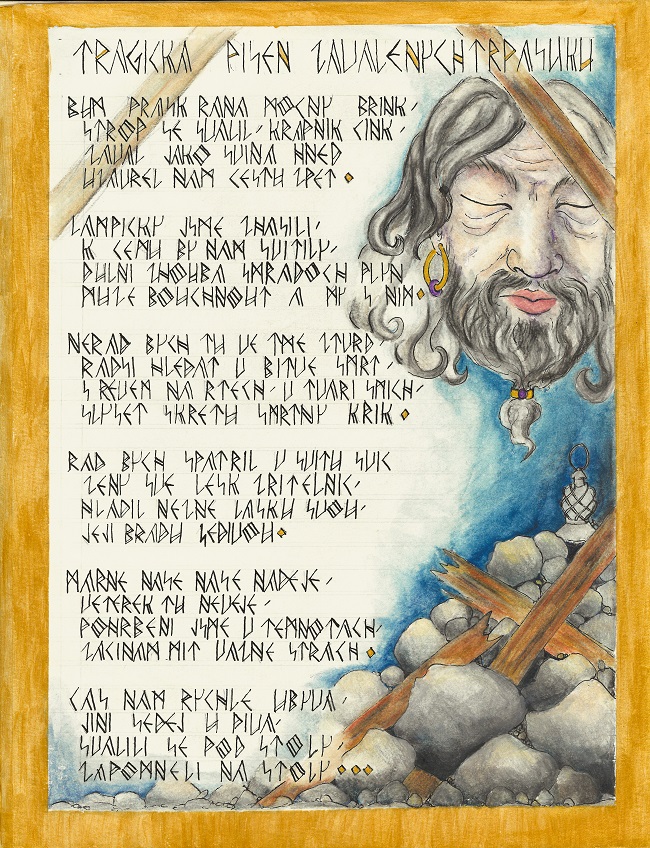 TRAGICKA PISEN ZAVALENYCH TRPASLIKU
BUM PRASK RANA MOCNY BRINK,
STROP SE SVALIL, KRAPNIK CINK,
ZAVAL JAKO SVINA HNED
UZAVREL NAM CESTU ZPET.
LAMPICKY JSME ZHASILI,
K CEMU BY NAM SVITILY,
DULNI ZHOUBA SMRADOCH PLYN
MUZE BOUCHNOUT A MY S NIM.
NERAD BYCH TU VE TME ZTVRD,
RADSI HLEDAT V BITVE SMRT,
S REVEM NA RTECH, V TVARI SMICH,
SLYSET SKRETU SMRTNY KRIK.
RAD BYCH SPATRIL V SVITU SVIC
ZENY SVE LESK ZRITELNIC,
HLADIL NEZNE LASKU SVOU,
JEJI BRADU SEDIVOU.
MARNE NASE NASE NADEJE,
VETEREK TU NEVEJE,
POHRBENI JSME V TEMNOTACH,
ZACINAM MIT VAZNE STRACH.
CAS NAM RYCHLE UBYVA,
JINI SEDEJ U PIVA,
SVALILI SE POD STOLY,
ZAPOMNELI NA STOLY...